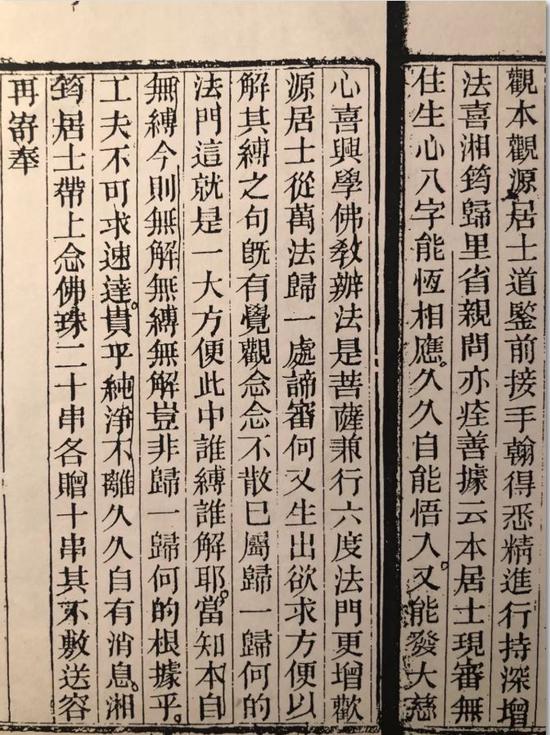 觀本觀源居士道鑒前接手翰得悉精進行持深增
法喜湘筠歸里省親問亦痊善據云本居士現審無
住生心八字能恆相應久久自能悟入又能發大慈
心喜興學佛教辦法是菩薩兼行六度法門更增歡
源居士從萬法歸一處諦審何又生出欲求方便以
解其縛之句旣有覺觀念念不散已屬歸一歸何的
法門這就是一大方便此中誰縛誰解耶當知本自
無縛今則無解無縛無解豈非歸一歸何的根據乎
工夫不可求速達貴乎純淨不離久久自有消息湘
筠居士帶上念佛珠二十串各贈十串其不敷送容
再寄奉